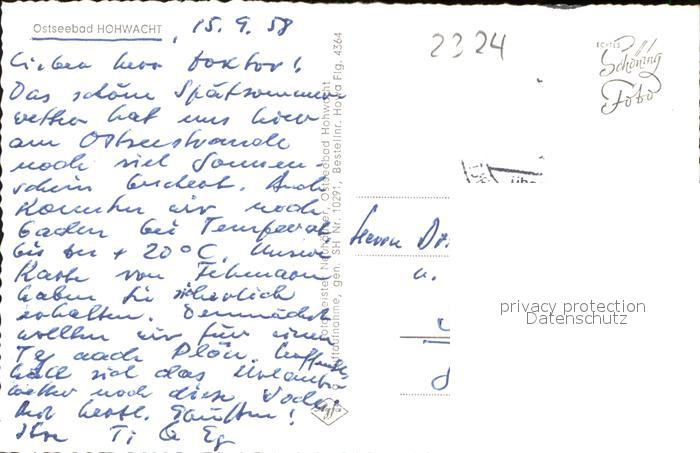 Ostseebad HOHWACHT, 15.9.58
Lieber Herr Doktor!
Das schöne Spätsommer-
wetter hat uns hier
am Ostseestrande
noch viel Sonnen-
schein beschert. Auch
konnten wir noch
baden bei Temperat.
bis zu + 20°C. Unsere
Karte von Fehmarn
haben Sie sicherlich
erhalten. Demnächst
wollen wir für einen
Tag nach Plön. Hoffentl.
hält sich das Urlaubs-
wetter noch diese Woche.
Mit herzl. Grüßen!
Ihre Ti &
Ostseebad Hohwacht
gen. SH Nr. 10291, Bestellnr. Howa Flg. 4364
Agfa
2324
ECHTES
Schöning
Foto
Herrn Dr.
u.
privacy protection
Datenschutz